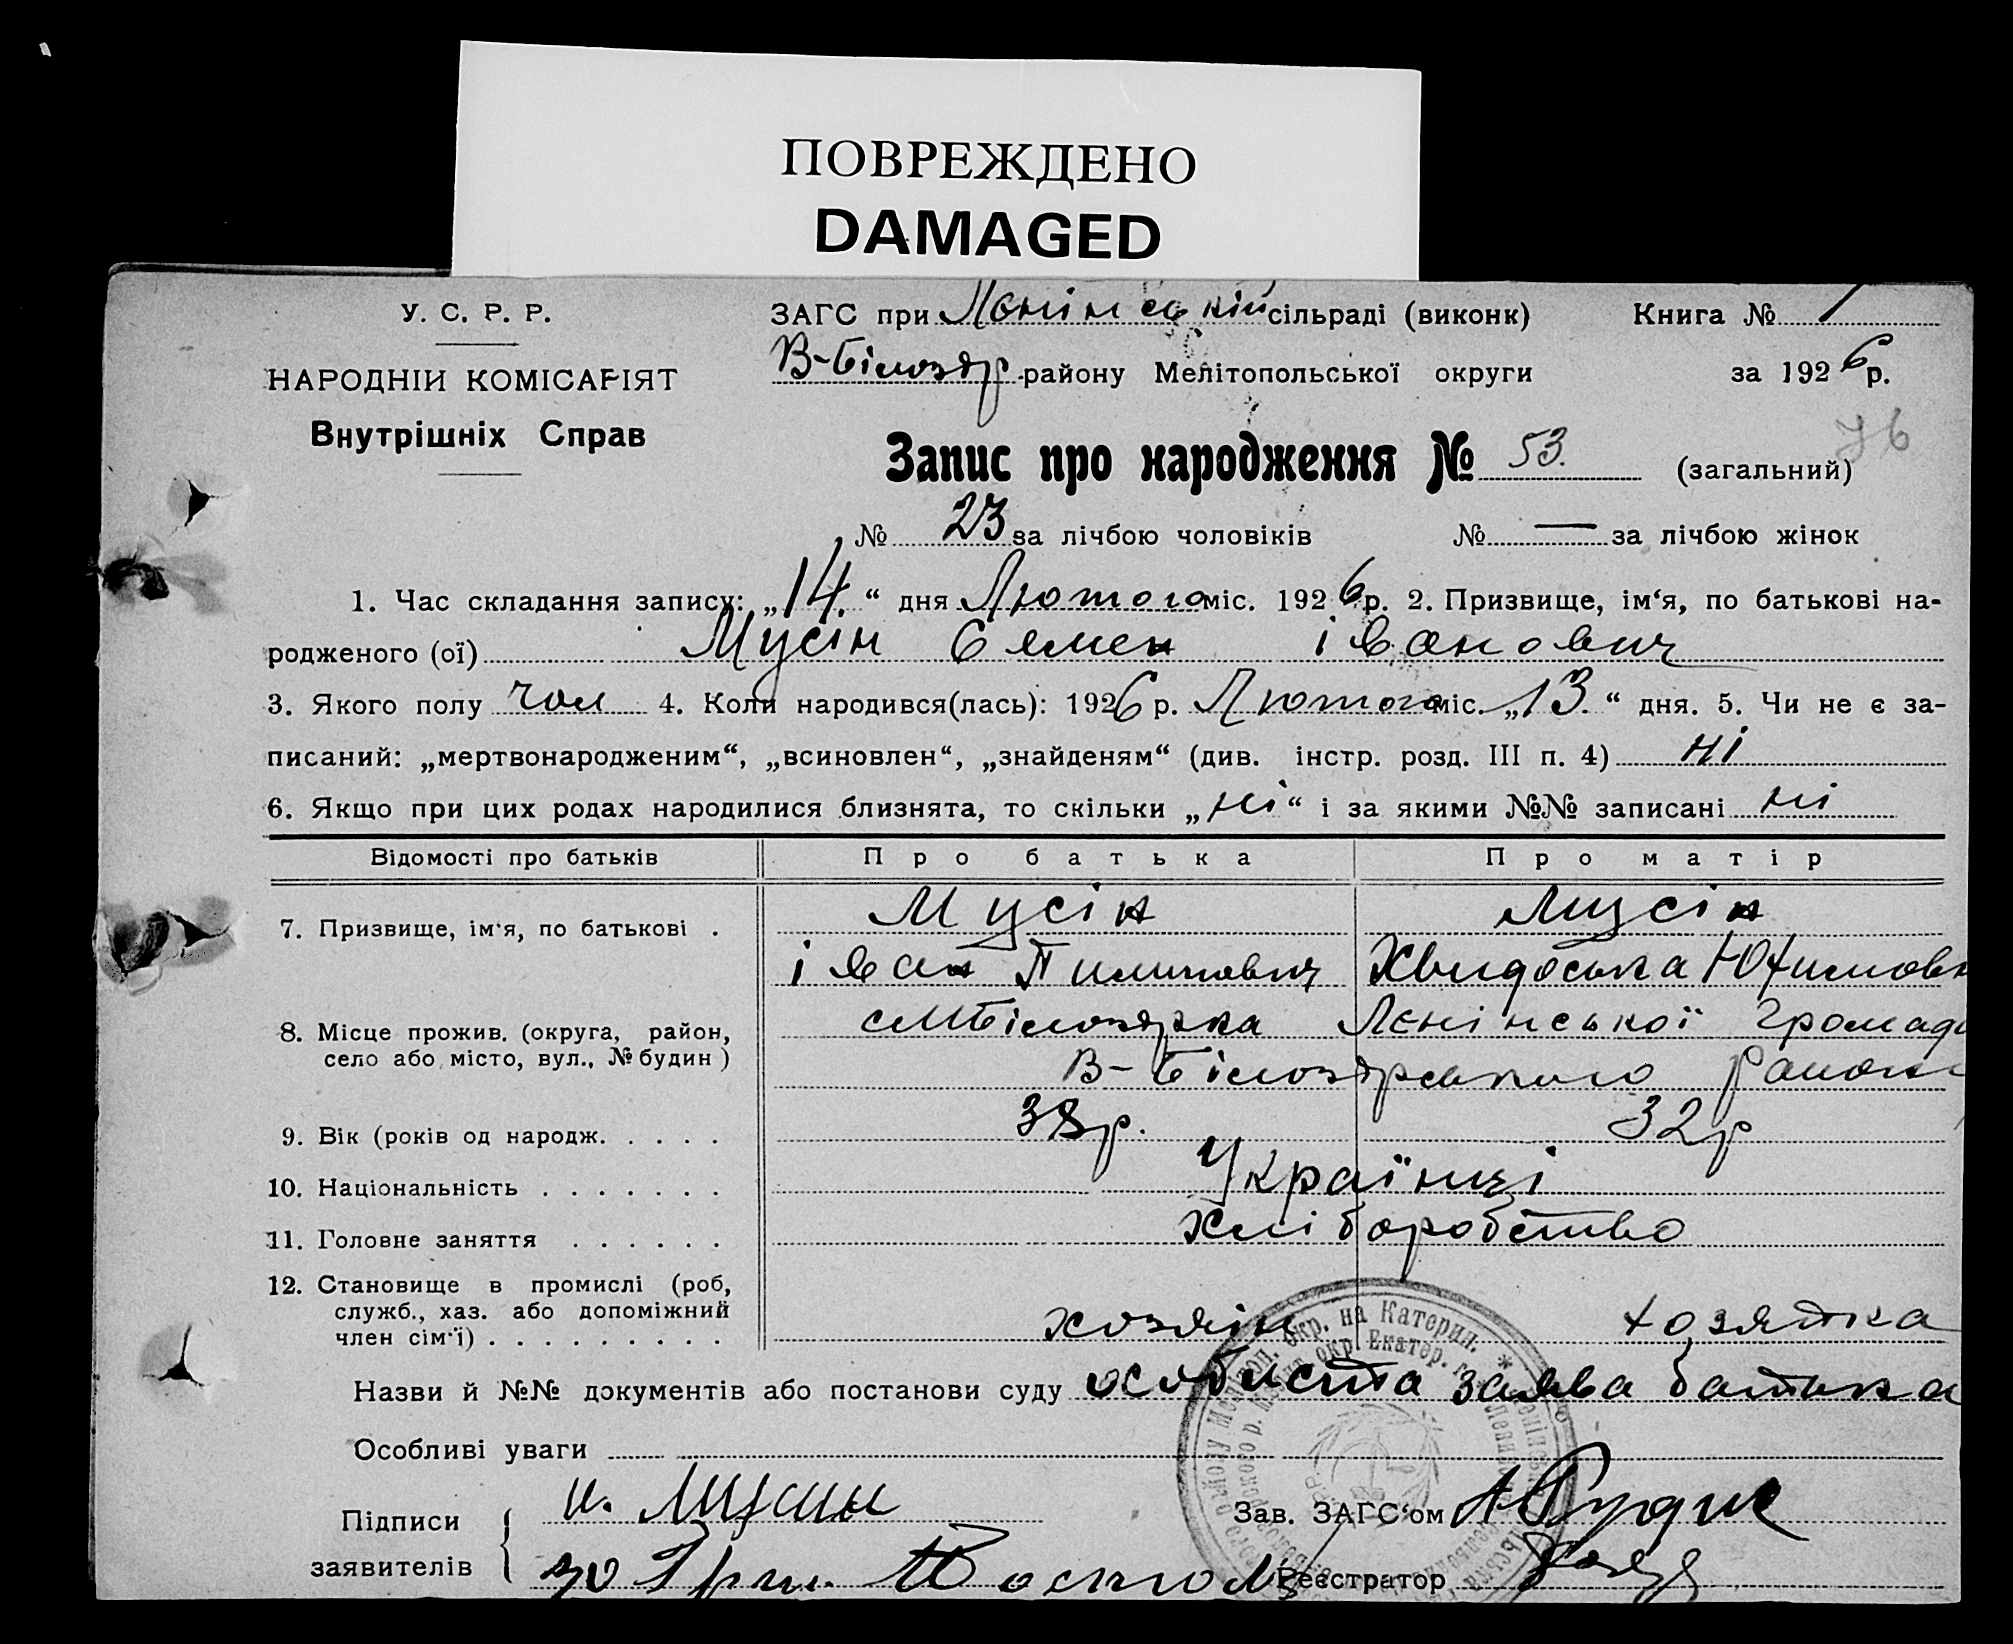 ПОВРЕЖДЕНО
DAMAGED
У. С. Р. Р.
НАРОДНІЙ КОМІСАРІЯТ
Внутрішніх Справ
ЗАГС при Ленінській сільраді (виконк)
Книга № 1
В-Білозер району Мелітопольської округи
за 1926 р.
76
Запис про народження № 53. (загальний)
№ 23 за лічбою чоловіків № — за лічбою жінок
1. Час складання запису: „14.“ дня Лютого міс. 1926 р. 2. Призвище, ім‘я, по батькові на-
родженого (ої) Мусін Семен іванович
3. Якого полу чол 4. Коли народився(лась): 1926 р. Лютого міс. „13.“ дня. 5. Чи не є за-
писаний: „мертвонародженим“, „всиновлен“, „знайденям“ (див. інстр. розд. III п. 4) ні
6. Якщо при цих родах народилися близнята, то скільки „ні“ і за якими №№ записані ні
Відомості про батьків Про батька Про матір
7. Призвище, ім‘я, по батькові . Мусін Мусін
іван Пилипович Хвидоська Юхимовн
8. Місце прожив. (округа, район, Ленінської громади
село або місто, вул., № будин) В-Білозерського району
9. Вік (років од народж. . . . . 38р. 32р
10. Національність . . . . . . . Українці
11. Головне заняття . . . . . . хліборобство
12. Становище в промислі (роб,
служб., хаз. або допоміжний
член сім‘ї) . . . . . . . . . . хозяін хозяйка
Назви й №№ документів або постанови суду особиста заява батька
Особливі уваги
Підписи
заявителів
и. Мусин
Зав. ЗАГС‘ом
Реєстратор